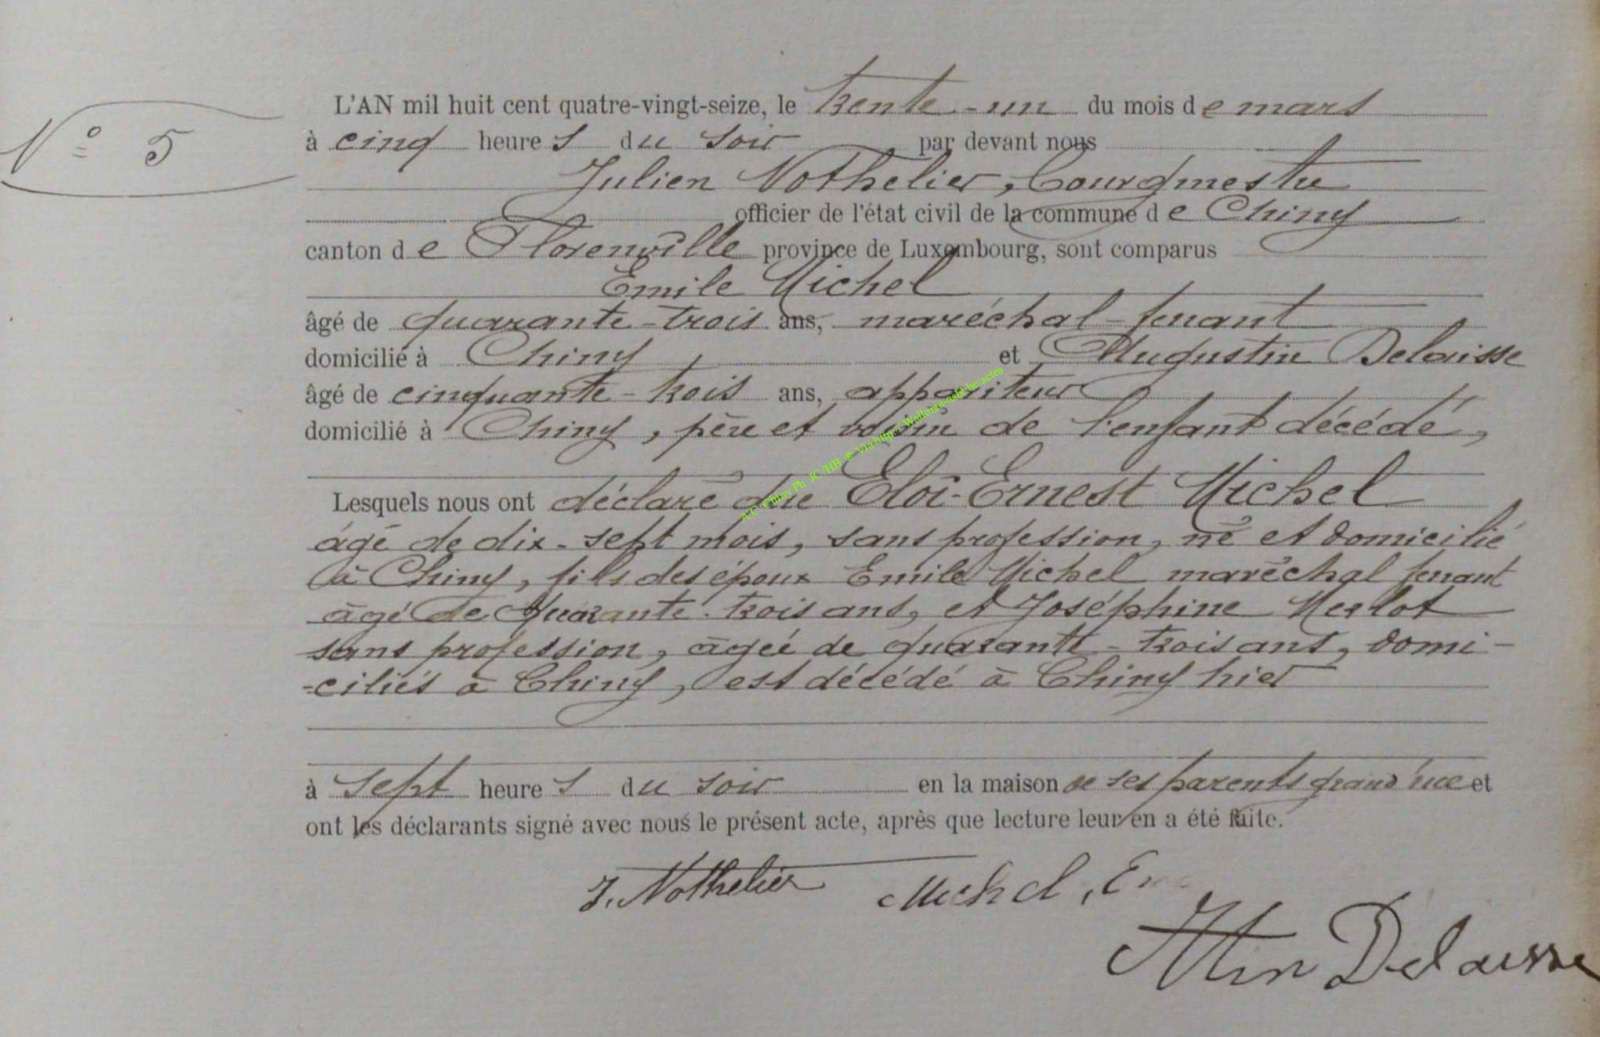 N° 5
L'AN mil huit cent quatre-vingt-seize, le trente-un du mois de mars
à cinq heures du soir par devant nous
Julien Nothelier, bourgmestre
officier de l'état civil de la commune de Chiny
canton de Florenville province de Luxembourg, sont comparus
Emile Michel
âgé de quarante-trois ans, maréchal-ferrant
domicilié à Chiny et Augustin Delaisse
âgé de cinquante-trois ans, appariteur
domicilié à Chiny, père et voisin de l'enfant décédé,
Lesquels nous ont déclaré que Eloi-Ernest Michel
âgé de dix-sept mois, sans profession, né et domicilié
à Chiny, fils des époux Emile Michel maréchal ferrant
âgé de quarante-trois ans, et Joséphine Merlot
sans profession, âgée de quarante-trois ans, domi-
-ciliés à Chiny, est décédé à Chiny hier
à sept heures du soir en la maison de ses parents grand'rue et
ont les déclarants signé avec nous le présent acte, après que lecture leur en a été faite.
J. Nothelier Michel, E
Atin Delaisse